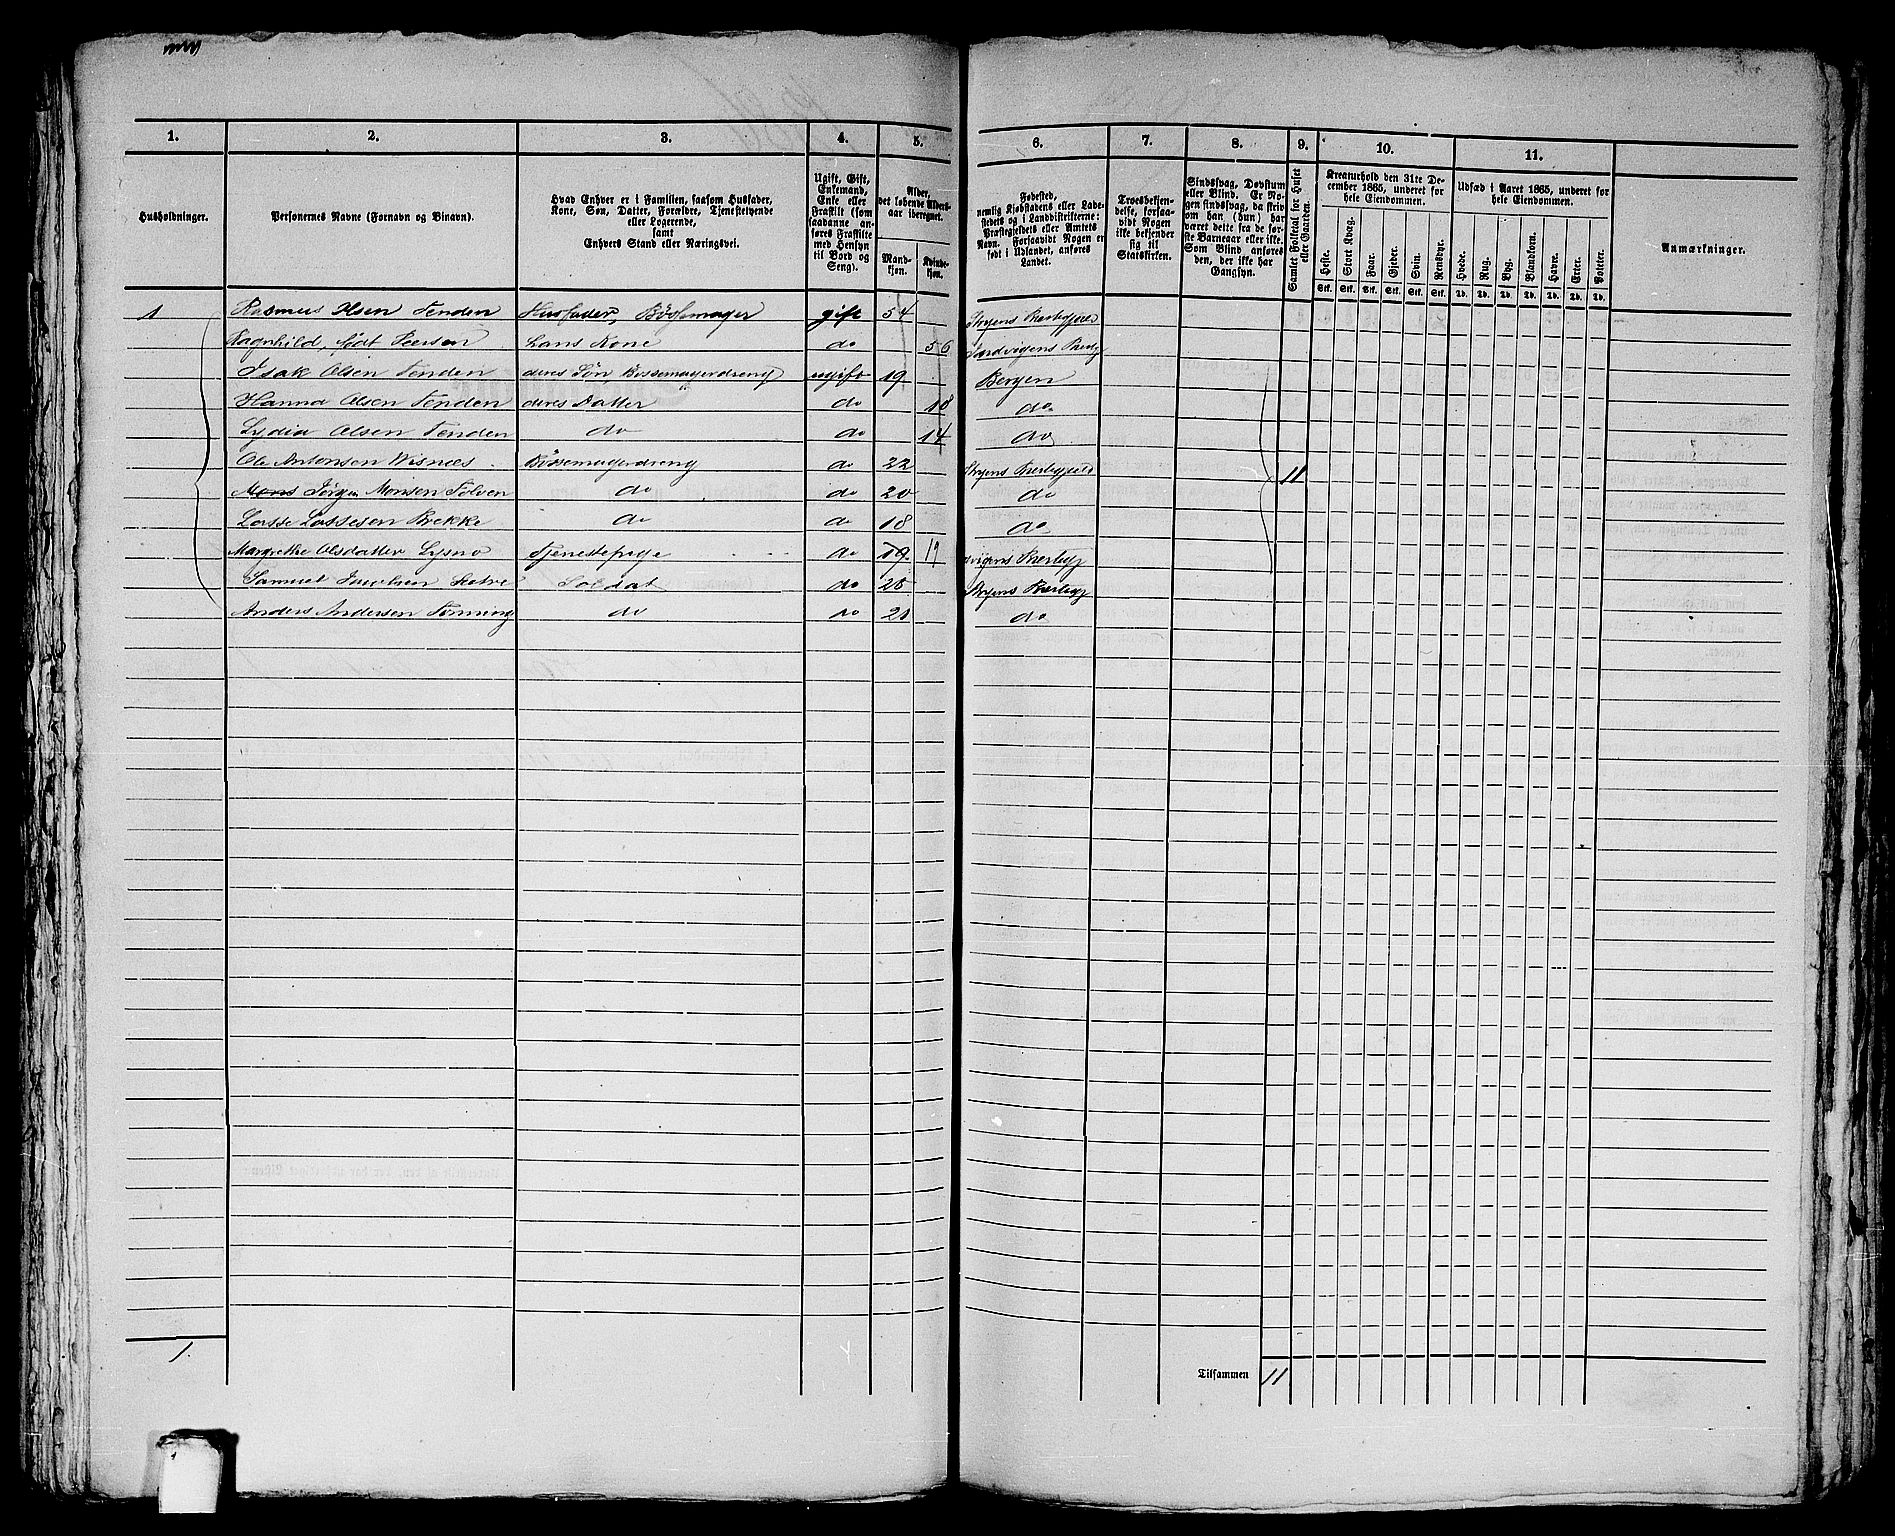 1. 2. 3. 4. 5. 6. 7. 8. 9. 10. 11.
Husholdninger.
Personernes Navne (Fornavn og Binavn).
Hvad Enhver er i Familien, saasom Husfader,
Kone, Søn, Datter, Forældre, Tjenestetyende
eller Logerende,
samt
Enhvers Stand eller Næringsvei.
Ugift, Gift,
Enkemand,
Enke eller
Fraskilt (som
saadanne an-
føres Fraskilte
med Hensyn
til Bord og
Seng).
Alder,
det løbende Alders-
aar iberegnet.
Mand-
kjøn.
Kvinde-
kjøn.
Fødested,
nemlig Kjøbstadens eller Lade-
stedets og i Landdistrikterne:
Præstegjeldets eller Amtets
Navn. Forsaavidt Nogen er
født i Udlandet, anføres
Landet.
Troesbekjen-
delse, forsaa-
vidt Nogen
ikke bekjender
sig til
Statskirken.
Sindssvag, Døvstum
eller Blind. Er No-
gen sindssvag, da skriv
om han (hun) har
været dette fra de før-
ste Barneaar eller ikke.
Som Blind anføres
den, der ikke har
Gangsyn.
Samlet Folketal for Huset
eller Gaarden.
Kreaturhold den 31te De-
cember 1865, underet for
hele Eiendommen.
Heste. Stort Kvæg. Faar. Gjeder. Svin. Rensdyr.
Stk. Stk. Stk. Stk. Stk. Stk.
Udsæd i Aaret 1865, underet for
hele Eiendommen.
Hvede. Rug. Byg. Blandkorn. Havre. Erter. Poteter.
Td. Td. Td. Td. Td. Td. Td.
Anmærkninger.
1 Rasmus Olsen Tenden Husfader, Bössemager gift 54 Stryens Præstegjeld
Ragnhild, født Peersen hans Kone do 56
Isak Olsen Tenden deres Søn, Bössemagerdreng ugift 19 Bergen
Hanna Olsen Tenden deres Datter do 18 do
Lydia Olsen Tenden do do 14 do
Ole Antonsen Wisnæs Bössemagerdreng do 22 Stryens Præstegjeld 11
Mons Jörgen Monsen Tolven do do 20 do
Lasse Lassesen Brekke do do 18 do
Margrethe Olsdatter Tjenestepige do 19 19
Samuel Jacobsen Soldat do 20 Stryens Præstegj
Anders Andersen do do 21 do
1.
Tilsammen 11